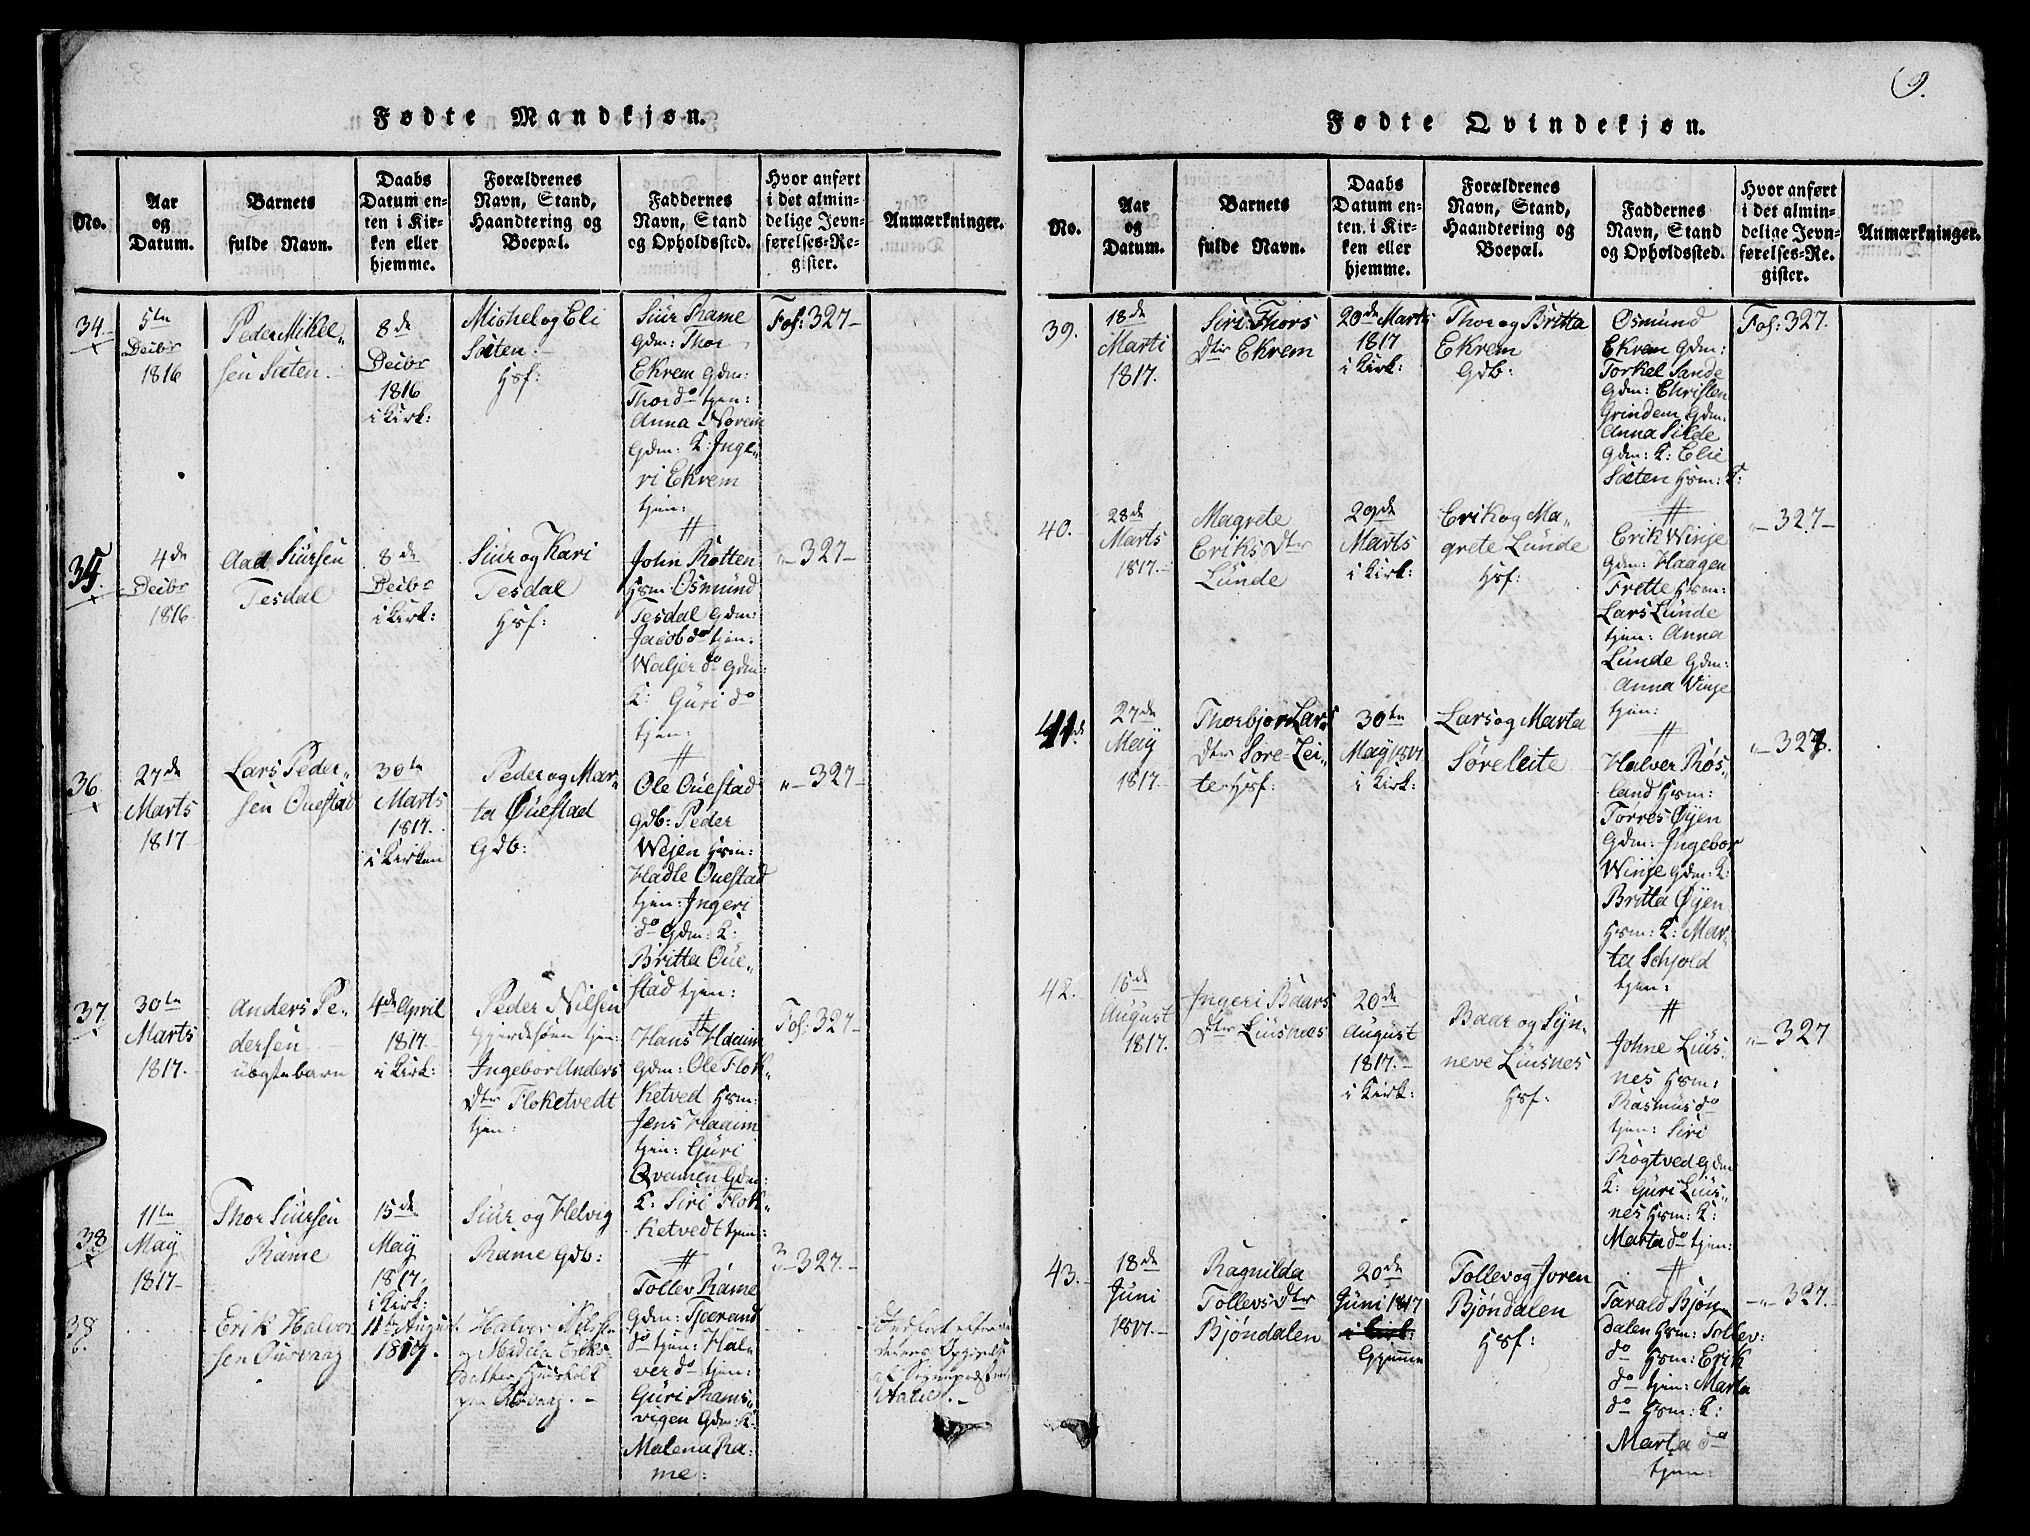 9.
Fødte Mandkjøn.
No.
Aar
og
Datum.
Barnets
fulde Navn.
Daabs
Datum en-
ten i Kir-
ken eller
hjemme.
Forældrenes
Navn, Stand,
Haandtering og
Boepæl.
Faddernes
Navn, Stand
og Opholdssted.
Hvor anført
i det almin-
delige Jevn-
førelses-Re-
gister.
Anmærkninger.
34.
5te
Decbr
1816
Peder Mikel„
sen Sæten.
8de
Decbr
1816
i Kirk:
Michel og Eli
Sæten.
Hsf:
Siur Rame
gdm: Thor
Ekrem gdm:
Thor do tjen:
Anna Norem
gdm: K: Inge„
ri Ekrem
tjen:
Fol: 327-
35.
4de
Decbr
1816
Aad Siursen
Tesdal
8de
Decbr
i Kirk:
Siur og Kari
Tesdal
Hsf:
John Rotten
Hsm: Osmund
Tesdal gdm:
Jacob do tjen:
Waljer do gdm:
K: Guri do
tjen:
„-327-
36
27de
Marts
1817
Lars Peder„
sen Ouestad
30te
Marts
1817.
i Kirken
Peder og Mar„
ta Øuestad
Gdb:
Ole Ouestad
gdb: Peder
Wejen Hsm:
Hadle Ouestad
tjen: Ingeri
do gdm: K:
Britta Oue„
stad tjen:
„-327-
37
30te
Marts
1817.
Anders Pe„
dersen
uægte barn
4de April
1817-
i Kirk:
Peder Nilsen
Gjerdesøen tjen:
Ingebor Anders
Dtr Floketvedt
tjen:
Hans Haaim
gdm: Ole Flok„
ketved Hsm:
Jens Haaim
tjen: Guri
Qvamen Gdm:
K: Siri Flok„
ketvedt tjen:
Fol: 327-
38
11te
May
1817-
Thor Siursen
Rame
15de
May
1817.
i Kirk:
Siur og Helvig
Rame Gdb:
Tollev Rame
gdm: Tjerand
do tjen: Hal„
ver do tjen:
Guri Rams„
vigen Gdm: K:
Malena Ra„
me:
„-327.-
38
b.
Erik Halvor
sen Ousvaag
11te August
1817.
Halvor Nilsen
og Madela Eriks
datter, Huusfolk
paa Ousvaag.-
Indført efter
Faderens Opgivelse
af Sognepræst
Valeur.-
Fødte Qvindekjøn.
No.
Aar
og
Datum.
Barnets
fulde Navn.
Daabs
Datum en-
ten i Kir-
ken eller
hjemme.
Forældrenes
Navn, Stand,
Haandtering og
Boepæl.
Faddernes
Navn, Stand
og Opholdssted.
Hvor anført
i det almin-
delige Jevn-
førelses-Re-
gister.
Anmærkninger.
39.
18de
Marti
1817.
Siri Thors
Dtr Ekrem
20de Marts
1817
i Kirk:
Thor og Britta
Ekrem
Gdb:
Osmund
Ekrem Gdm:
Torkel Sande
Gdm: Christen
Grindem Gdm:
Anna Silde
Gdm: K: Elie
Sæten Hsm: K:
Fol: 327.
40.
28de
Marts
1817.-
Magrete
Eriks Dtr
Lunde
29de
Marts
i Kirk:
Erik og Ma„
grete Lunde
Hsf:
Erik Winje
Gdm: Haagen
Frette Hsm:
Lars Lunde
tjen: Anna
Lunde Gdm:
Anna Vinje
tjen:
„-327-
41
27de
May
1817
Thorbjor Lars
Dtr Søre Lei„
te Hsf:
30te
May 1817
i Kirk:
Lars og Marta
Søreleite
Halver Røs„
land Hsm:
Torres Øyen
Gdm: Ingebor
Winje Gdm: K:
Britta Øyen
Hsm: K: Mar„
ta Schjold
tjen:
„-327.
42.
15de
August
1817.
Ingeri Baars
Dtr Liusnæs
20de
August
1817.-
i Kirk:
Baar og Syn„
neve Liusnes
Hsf:
Johne Lius„
nes Hsm:
Rasmus do
tjen: Siri
Røgtved Gdm
K: Guri Lius„
nes Hsm: K:
Marta do tjen:
„-327
43.
18de
Juni
1817.-
Ragnilda
Tollevs Dtr
Bjøndalen
20de
Juni 1817
i Kirk:
Hjemme
Tollev og Joren
Bjøndalen
Hsf:
Tarald Bjøn„
dalen Hsm: Tollev:
do Hsm: Erik
do tjen: Marta
do Hsm: K:
Marta do
tjen:
-„-327.-